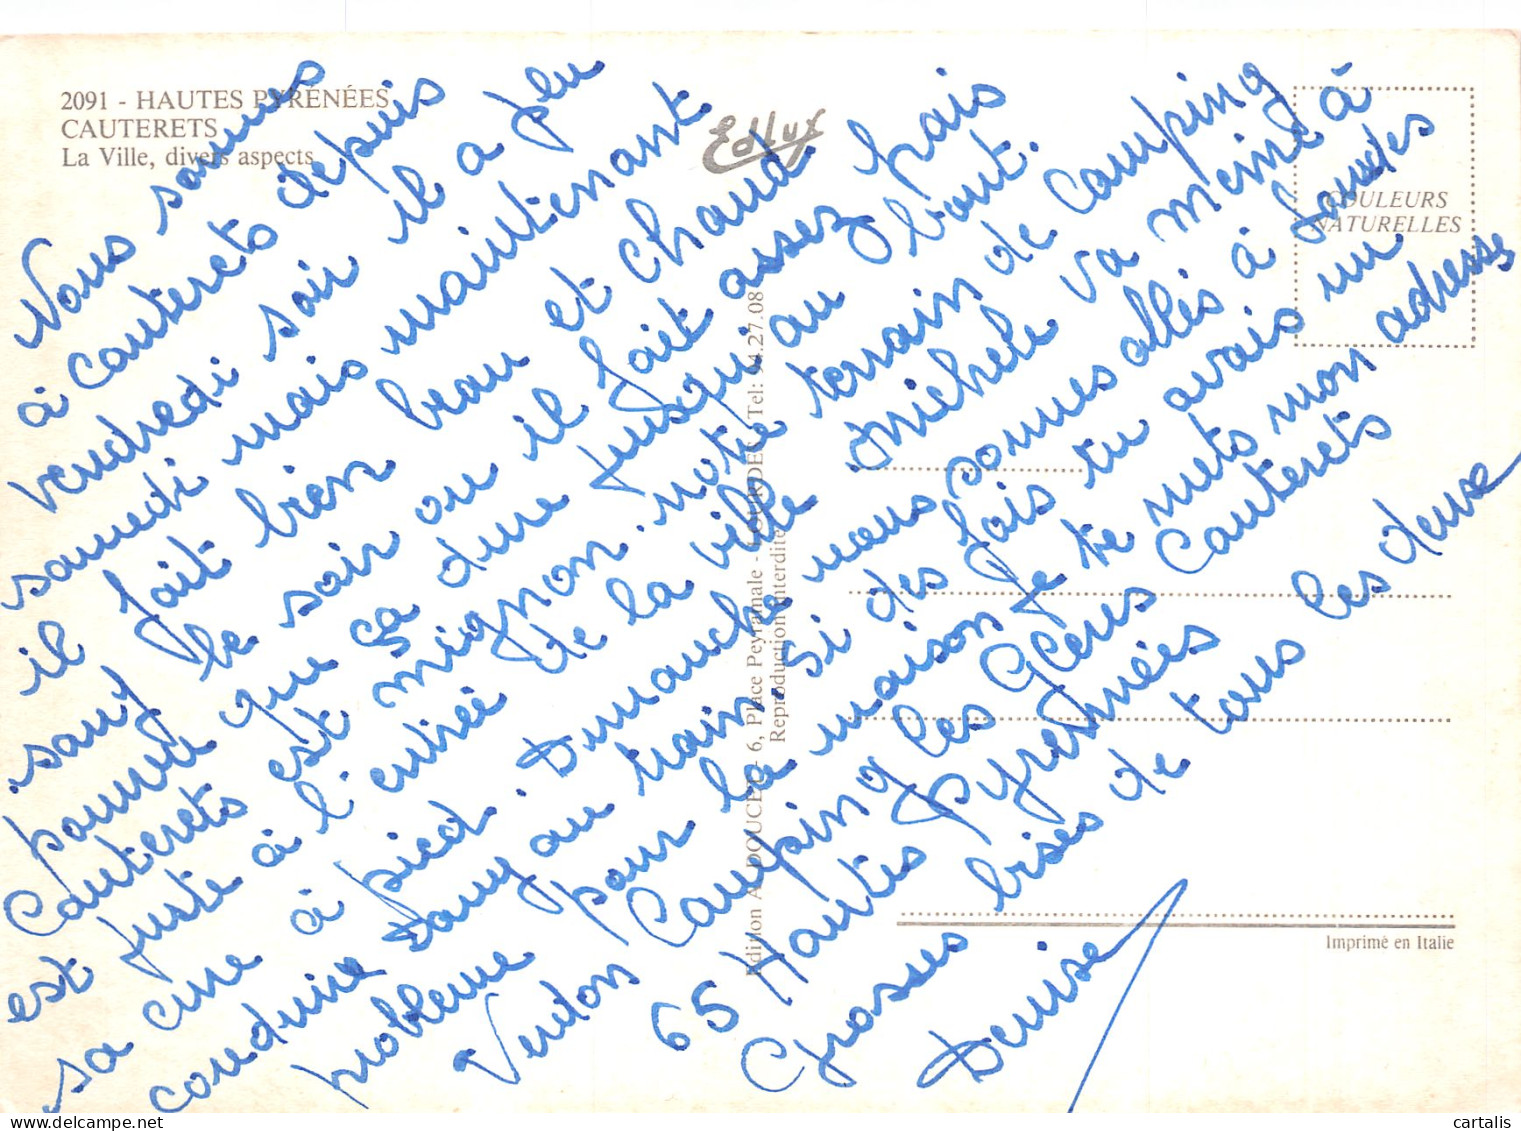 2091 - HAUTES PYRÉNÉES
CAUTERETS
La Ville, divers aspects
Edlux
COULEURS
NATURELLES
Edition A. DOUCET - 6, Place Peyramale - LOURDES - Tel: 94.27.08
Reproduction interdite
Imprimé en Italie
Nous sommes
à Cauterets depuis
vendredi soir il a plu
samedi mais maintenant
il fait bien beau et chaud
sauf le soir ou il fait assez frais
pourvu que ça dure jusqu'au bout.
Cauterets est mignon. notre terrain de camping
est juste à l'entrée de la ville Michele va meme à
sa cure à pied. Dimanche nous sommes allés à Lourdes
conduire Dany au train. Si des fois tu avais un
probleme pour la maison Je te mets mon adresse
Verdon Camping les Gleres Cauterets
65 Hautes Pyrennées
Grosses bises de tous les deux
Denise
cartalis